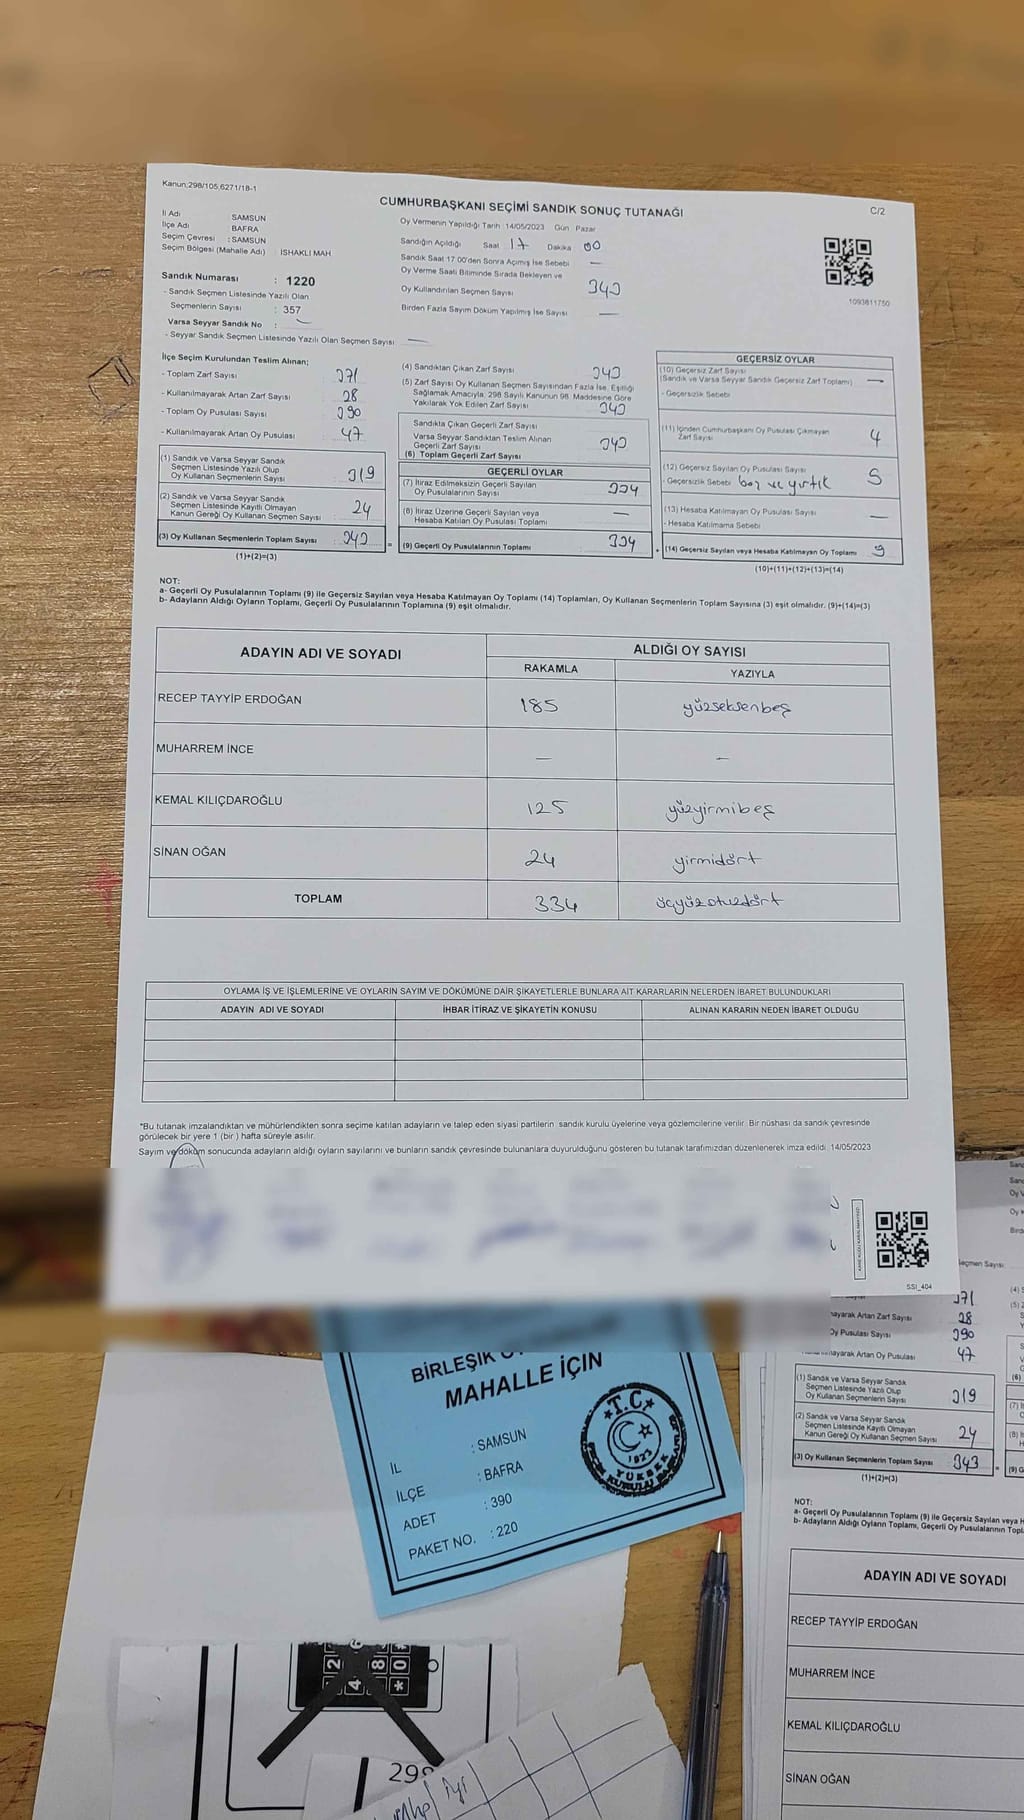 Kanun;298/105,6271/18-1
CUMHURBAŞKANI SEÇİMİ SANDIK SONUÇ TUTANAĞI
C/2
İl Adı SAMSUN
İlçe Adı BAFRA
Seçim Çevresi : SAMSUN
Seçim Bölgesi (Mahalle Adı) İSHAKLI MAH
Sandık Numarası : 1220
- Sandık Seçmen Listesinde Yazılı Olan
Seçmenlerin Sayısı : 357
Varsa Seyyar Sandık No :
- Seyyar Sandık Seçmen Listesinde Yazılı Olan Seçmen Sayısı —
Oy Vermenin Yapıldığı Tarih 14/05/2023 Gün Pazar
Sandığın Açıldığı Saat 17 Dakika 00
Sandık Saat 17 00'den Sonra Açımış İse Sebebi —
Oy Verme Saati Bitiminde Sırada Bekleyen ve
Oy Kullandırılan Seçmen Sayısı 343
Birden Fazla Sayım Döküm Yapılmış İse Sayısı —
1093811750
İlçe Seçim Kurulundan Teslim Alınan;
- Toplam Zarf Sayısı 371
- Kullanılmayarak Artan Zarf Sayısı 28
- Toplam Oy Pusulası Sayısı 390
- Kullanılmayarak Artan Oy Pusulası 47
(1) Sandık ve Varsa Seyyar Sandık
Seçmen Listesinde Yazılı Olup
Oy Kullanan Seçmenlerin Sayısı 319
(2) Sandık ve Varsa Seyyar Sandık
Seçmen Listesinde Kayıtlı Olmayan
Kanun Gereği Oy Kullanan Seçmen Sayısı 24
(3) Oy Kullanan Seçmenlerin Toplam Sayısı 343
(1)+(2)=(3)
(4) Sandıktan Çıkan Zarf Sayısı 343
(5) Zarf Sayısı Oy Kullanan Seçmen Sayısından Fazla İse, Eşitliği
Sağlamak Amacıyla; 298 Sayılı Kanunun 98. Maddesine Göre
Yakılarak Yok Edilen Zarf Sayısı 343
Sandıkta Çıkan Geçerli Zarf Sayısı
Varsa Seyyar Sandıktan Teslim Alınan
Geçerli Zarf Sayısı 343
(6) Toplam Geçerli Zarf Sayısı
GEÇERLİ OYLAR
(7) İtiraz Edilmeksizin Geçerli Sayılan
Oy Pusulalarının Sayısı 334
(8) İtiraz Üzerine Geçerli Sayılan veya
Hesaba Katılan Oy Pusulası Toplamı —
= (9) Geçerli Oy Pusulalarının Toplamı 334
GEÇERSİZ OYLAR
(10) Geçersiz Zarf Sayısı
(Sandık ve Varsa Seyyar Sandık Geçersiz Zarf Toplamı) —
- Geçersizlik Sebebi
(11) İçinden Cumhurbaşkanı Oy Pusulası Çıkmayan
Zarf Sayısı 4
(12) Geçersiz Sayılan Oy Pusulası Sayısı 5
- Geçersizlik Sebebi boş ve yırtık
(13) Hesaba Katılmayan Oy Pusulası Sayısı —
- Hesaba Katılmama Sebebi
+ (14) Geçersiz Sayılan veya Hesaba Katılmayan Oy Toplamı 9
(10)+(11)+(12)+(13)=(14)
NOT:
a- Geçerli Oy Pusulalarının Toplamı (9) ile Geçersiz Sayılan veya Hesaba Katılmayan Oy Toplamı (14) Toplamları, Oy Kullanan Seçmenlerin Toplam Sayısına (3) eşit olmalıdır. (9)+(14)=(3)
b- Adayların Aldığı Oyların Toplamı, Geçerli Oy Pusulalarının Toplamına (9) eşit olmalıdır.
ADAYIN ADI VE SOYADI ALDIĞI OY SAYISI
RAKAMLA YAZIYLA
RECEP TAYYİP ERDOĞAN 185 yüzseksenbeş
MUHARREM İNCE — —
KEMAL KILIÇDAROĞLU 125 yüzyirmibeş
SİNAN OĞAN 24 yirmidört
TOPLAM 334 üçyüzotuzdört
OYLAMA İŞ VE İŞLEMLERİNE VE OYLARIN SAYIM VE DÖKÜMÜNE DAİR ŞİKAYETLERLE BUNLARA AİT KARARLARIN NELERDEN İBARET BULUNDUKLARI
ADAYIN ADI VE SOYADI İHBAR İTİRAZ VE ŞİKAYETİN KONUSU ALINAN KARARIN NEDEN İBARET OLDUĞU
*Bu tutanak imzalandıktan ve mühürlendikten sonra seçime katılan adayların ve talep eden siyasi partilerin sandık kurulu üyelerine veya gözlemcilerine verilir. Bir nüshası da sandık çevresinde
görülecek bir yere 1 (bir ) hafta süreyle asılır.
Sayım ve döküm sonucunda adayların aldığı oyların sayılarını ve bunların sandık çevresinde bulunanlara duyurulduğunu gösteren bu tutanak tarafımızdan düzenlenerek imza edildi. 14/05/2023
SSİ_404
BİRLEŞİK
MAHALLE İÇİN
İL : SAMSUN
İLÇE : BAFRA
ADET : 390
PAKET NO. : 220
T.C
1923
YÜKSEK
SEÇİM KURULU BAŞKANLIĞI
371
mayarak Artan Zarf Sayısı 28
Oy Pusulası Sayısı 390
mayarak Artan Oy Pusulası 47
(1) Sandık ve Varsa Seyyar Sandık
Seçmen Listesinde Yazılı Olup
Oy Kullanan Seçmenlerin Sayısı 319
(2) Sandık ve Varsa Seyyar Sandık
Seçmen Listesinde Kayıtlı Olmayan
Kanun Gereği Oy Kullanan Seçmen Sayısı 24
(3) Oy Kullanan Seçmenlerin Toplam Sayısı 343
(1)+(2)=(3)
NOT:
a- Geçerli Oy Pusulalarının Toplamı (9) ile Geçersiz Sayılan veya H
b- Adayların Aldığı Oyların Toplamı, Geçerli Oy Pusulalarının Toplamın
ADAYIN ADI VE SOYADI
RECEP TAYYİP ERDOĞAN
MUHARREM İNCE
KEMAL KILIÇDAROĞLU
SİNAN OĞAN